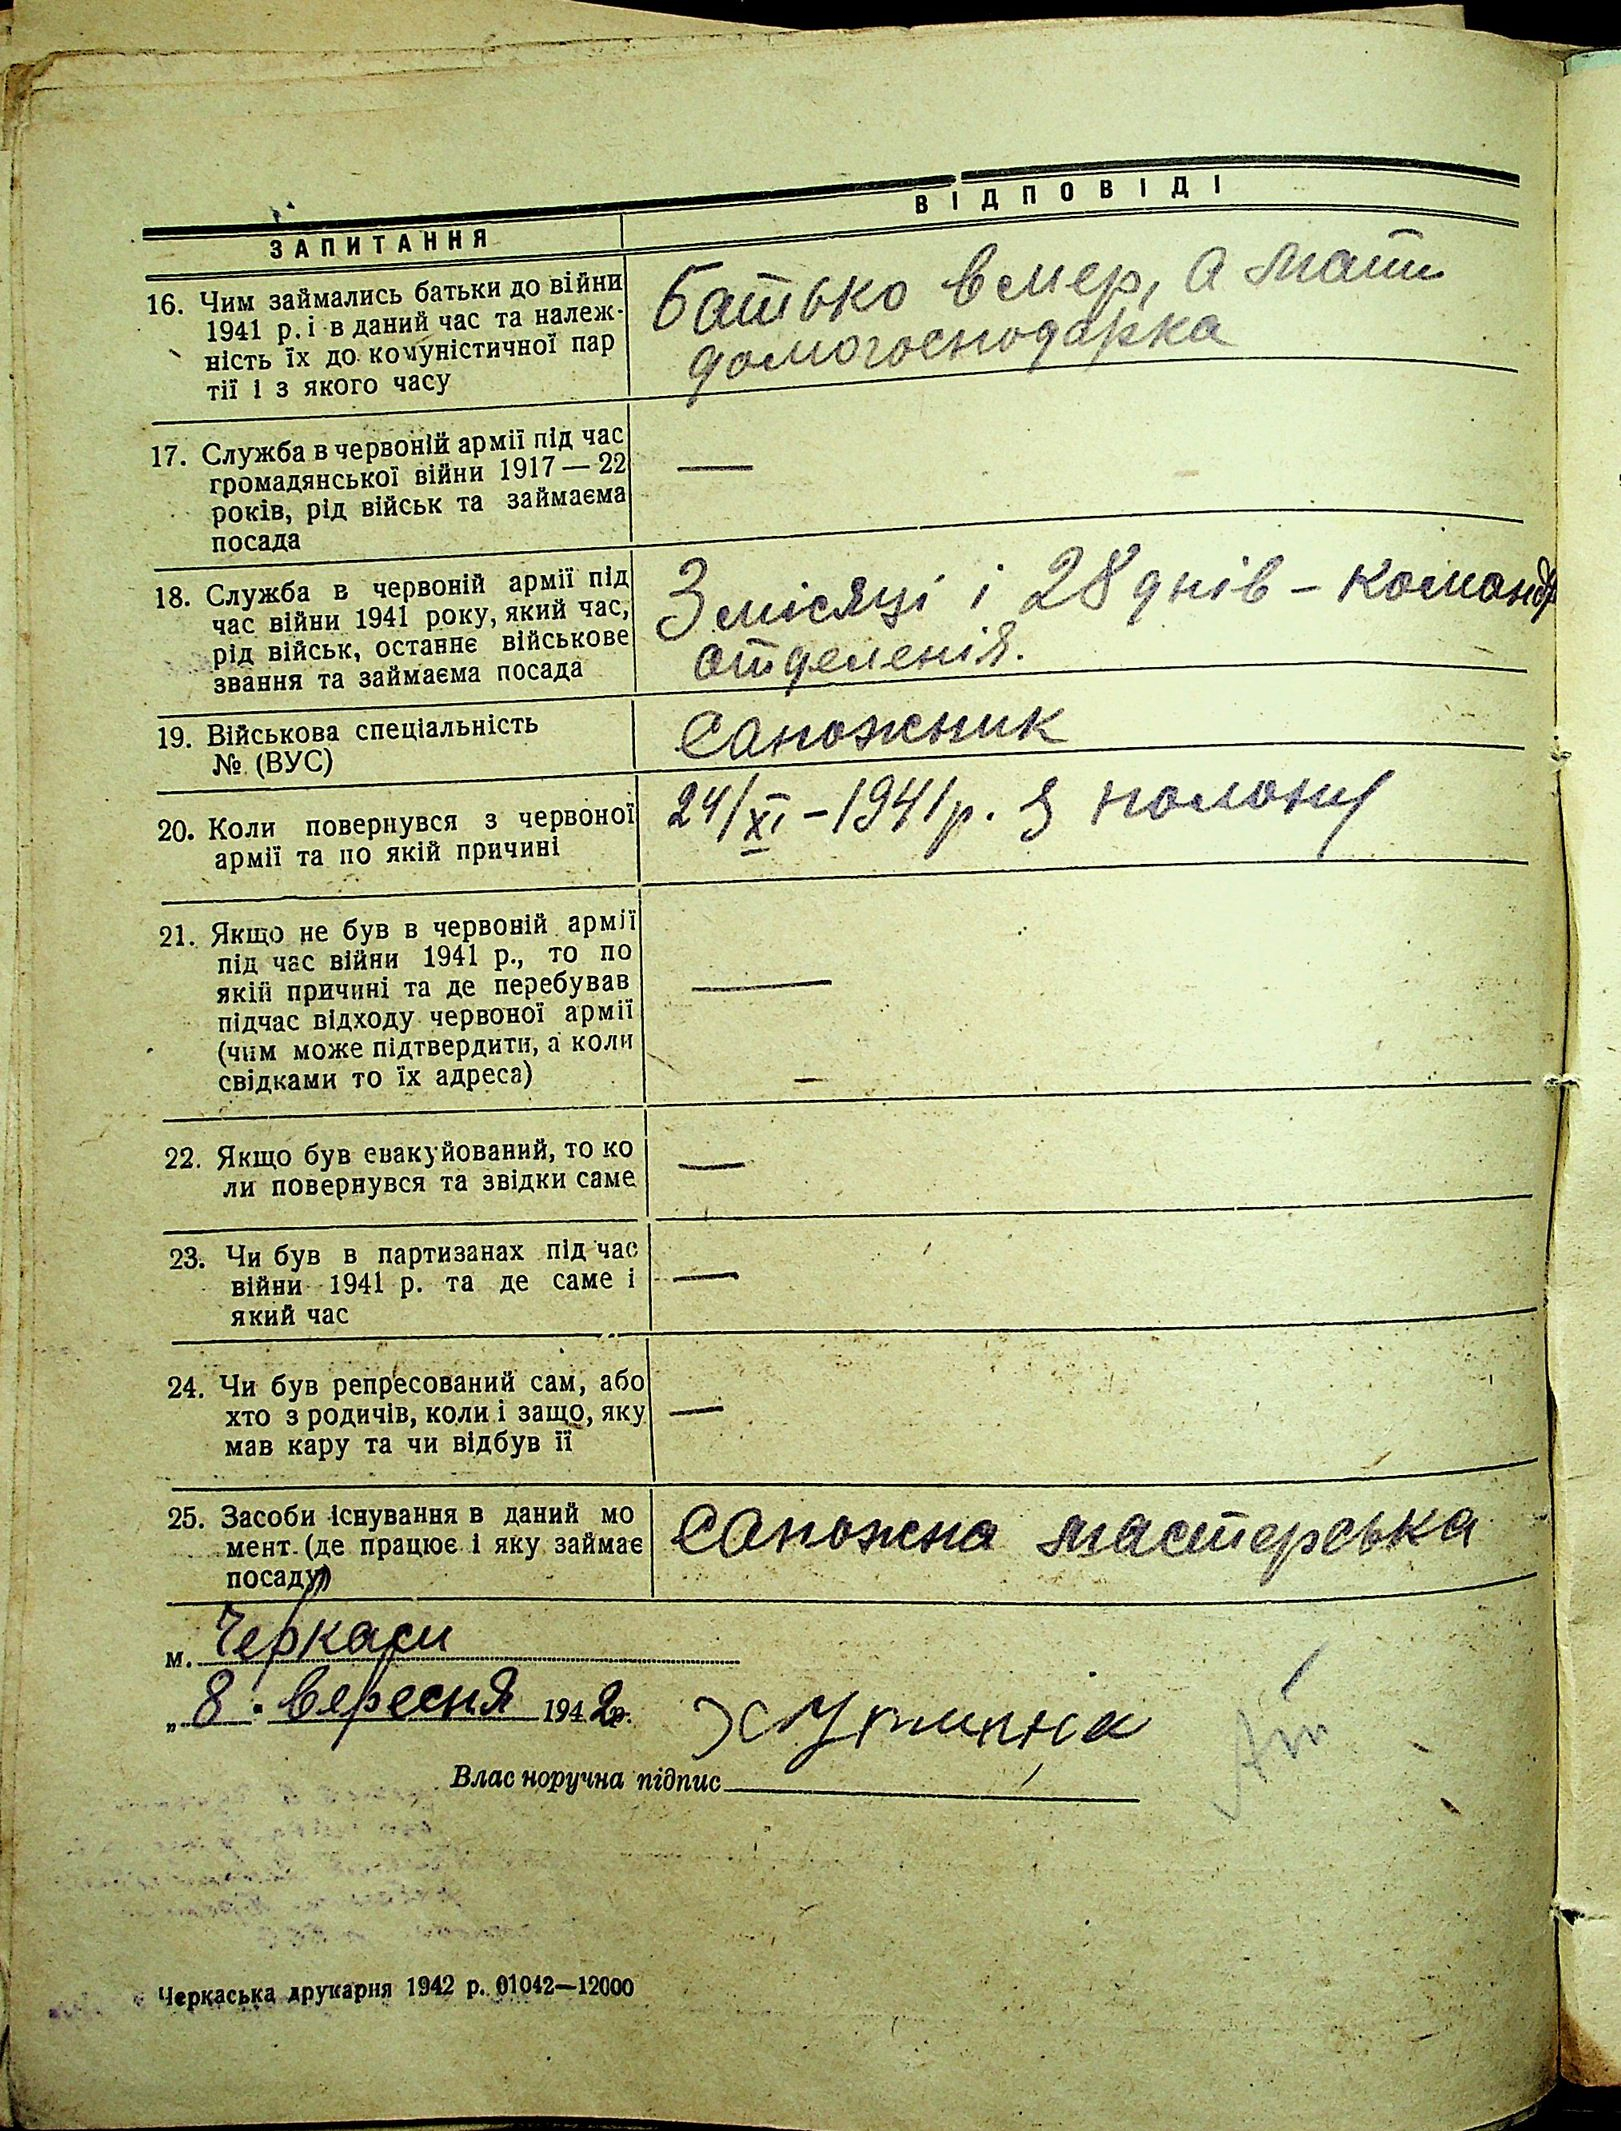 ЗАПИТАННЯ
ВІДПОВІДІ
16. Чим займались батьки до війни
1941 р. і в даний час та належ-
ність їх до комуністичної пар
тії і з якого часу
Батько вмер, а мати
домогосподарка
17. Служба в червоній армії під час
громадянської війни 1917—22
років, рід військ та займаєма
посада
—
18. Служба в червоній армії під
час війни 1941 року, який час,
рід військ, останнє військове
звання та займаєма посада
3 місяці і 28 днів – командір
отделенія.
19. Військова спеціальність
№ (ВУС)
Сапожник
20. Коли повернувся з червоної
армії та по якій причині
24/XI – 1941 р. З полону
21. Якщо не був в червоній армії
під час війни 1941 р., то по
якій причині та де перебував
підчас відходу червоної армії
(чим може підтвердити, а коли
свідками то їх адреса)
—
—
22. Якщо був евакуйований, то ко
ли повернувся та звідки саме
—
23. Чи був в партизанах під час
війни 1941 р. та де саме і
який час
—
24. Чи був репресований сам, або
хто з родичів, коли і защо, яку
мав кару та чи відбув її
—
25. Засоби існування в даний мо
мент (де працює і яку займає
посаду)
Сапожна мастерська
м. Черкаси
„ 8 . вересня 1942 р.
Власноручна підпис
Черкаська друкарня 1942 р. 01042—12000